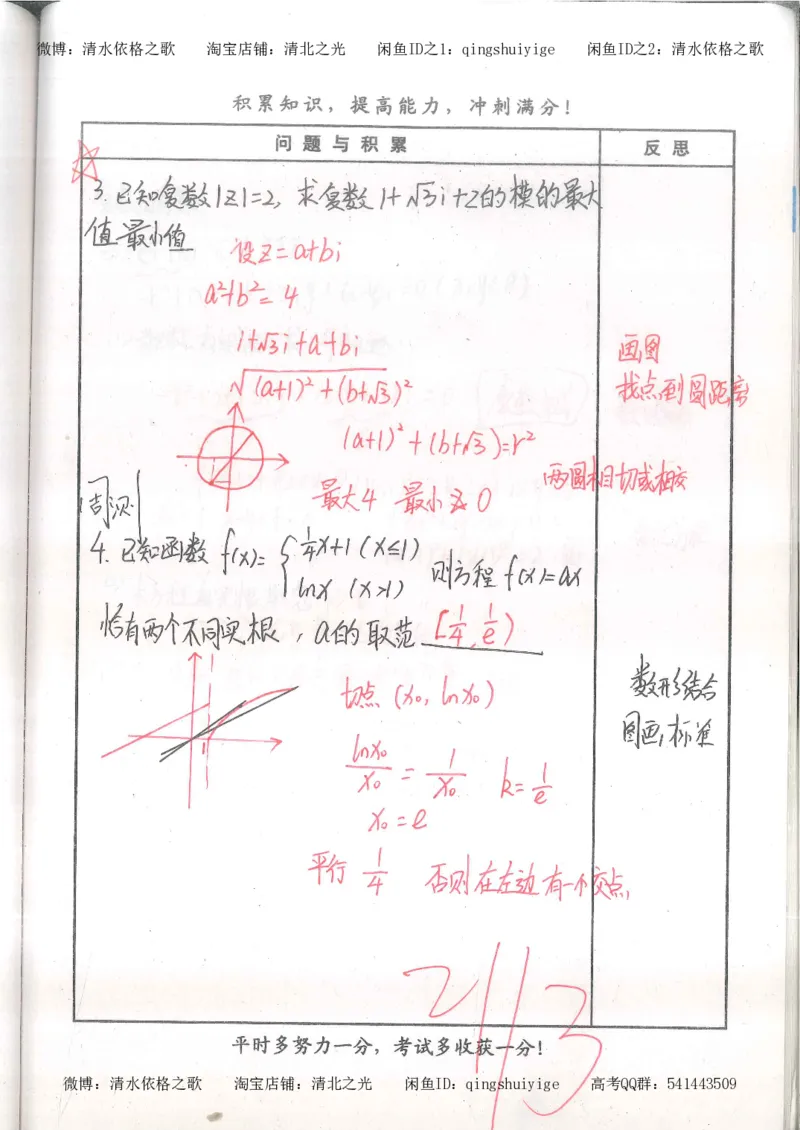 微博：清水依格之歌 淘宝店铺：清北之光 闲鱼ID之1：qingshuiyige 闲鱼ID之2：清水依格之歌
积累知识，提高能力，冲刺满分！
问题与积累 反思
3.已知复数|z|=2，求复数1+√3i+z的模的最大
值最小值 设z=a+bi
a²+b²=4
1+√3i+a+bi
√(a+1)²+(b+√3)²
画图
找点到圆距离
(a+1)²+(b+√3)=r²
两圆相切或相交
最大4 最小 0
周测
4.已知函数 f(x)={1/4x+1 (x≤1)
lnx (x>1) 则方程 f(x)=ax
恰有两个不同实根，a的取范 [1/4, 1/e)
数形结合
图画标准
切点 (x₀, lnx₀)
lnx₀/x₀ = 1/x₀ k=1/e
x₀=e
平行 1/4 否则在左边有一个交点
2/13
平时多努力一分，考试多收获一分！
微博：清水依格之歌 淘宝店铺：清北之光 闲鱼ID：qingshuiyige 高考QQ群：541443509